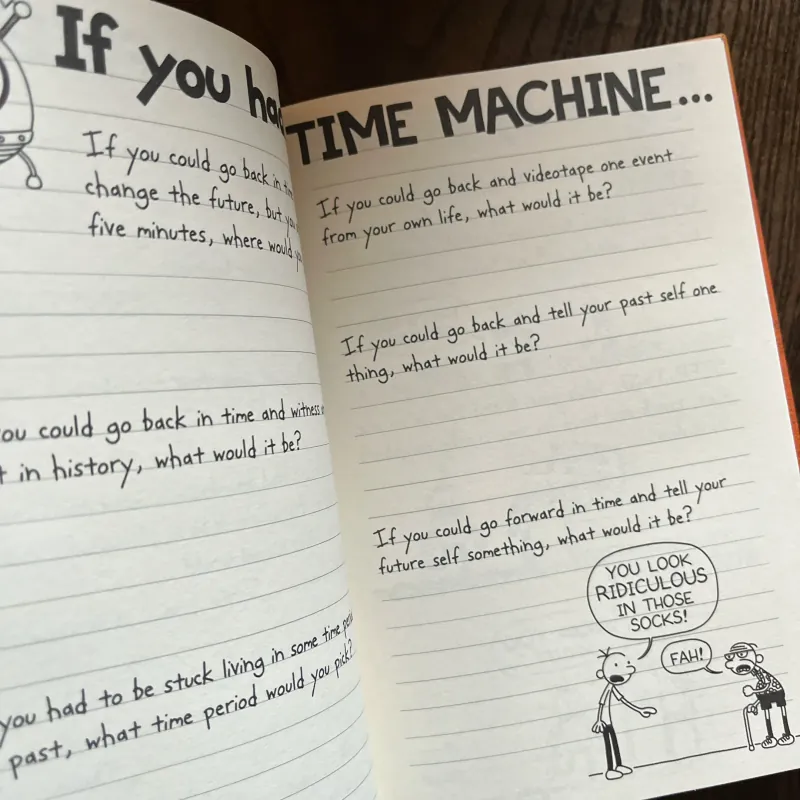 If you had
If you could go back in
change the future, but
five minutes, where would
you could go back in time and witness
in history, what would it be?
you had to be stuck living in some time
past, what time period would you pick?
TIME MACHINE...
If you could go back and videotape one event
from your own life, what would it be?
If you could go back and tell your past self one
thing, what would it be?
If you could go forward in time and tell your
future self something, what would it be?
YOU LOOK
RIDICULOUS
IN THOSE
SOCKS!
FAH!